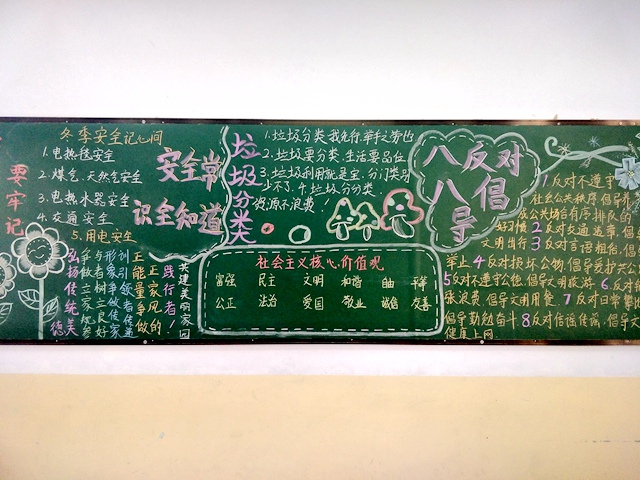 冬季安全记心间
要牢记
1.电热毯安全
2.煤气.天然气安全
3.电热水器安全
4.交通安全
5.用电安全
安全常
识全知道
弘扬传统美德
正能量争做
践行者!
共建美丽家园
垃圾分类
1.垃圾分类.我先行.举手之劳
2.垃圾要分类.生活要品位
3.垃圾利用就是宝.分门
少不了.4.垃圾分分类
资源不浪费!
社会主义核心价值观
富强 民主 文明 和谐 自由 平等
公正 法治 爱国 敬业 诚信 友善
八反对
八倡导
1反对不遵守
社会公共秩序.倡导
公共场合有序排队的
好习惯2反对交通违章,倡导
文明出行3反对言语粗俗,倡
举止4反对损坏公物.倡导爱护
5反对不遵守公德.倡导文明旅游.6反对
张浪费.倡导文明用餐.7反对
倡导勤勉奋斗8反对信谣传谣.倡导
健康上网.